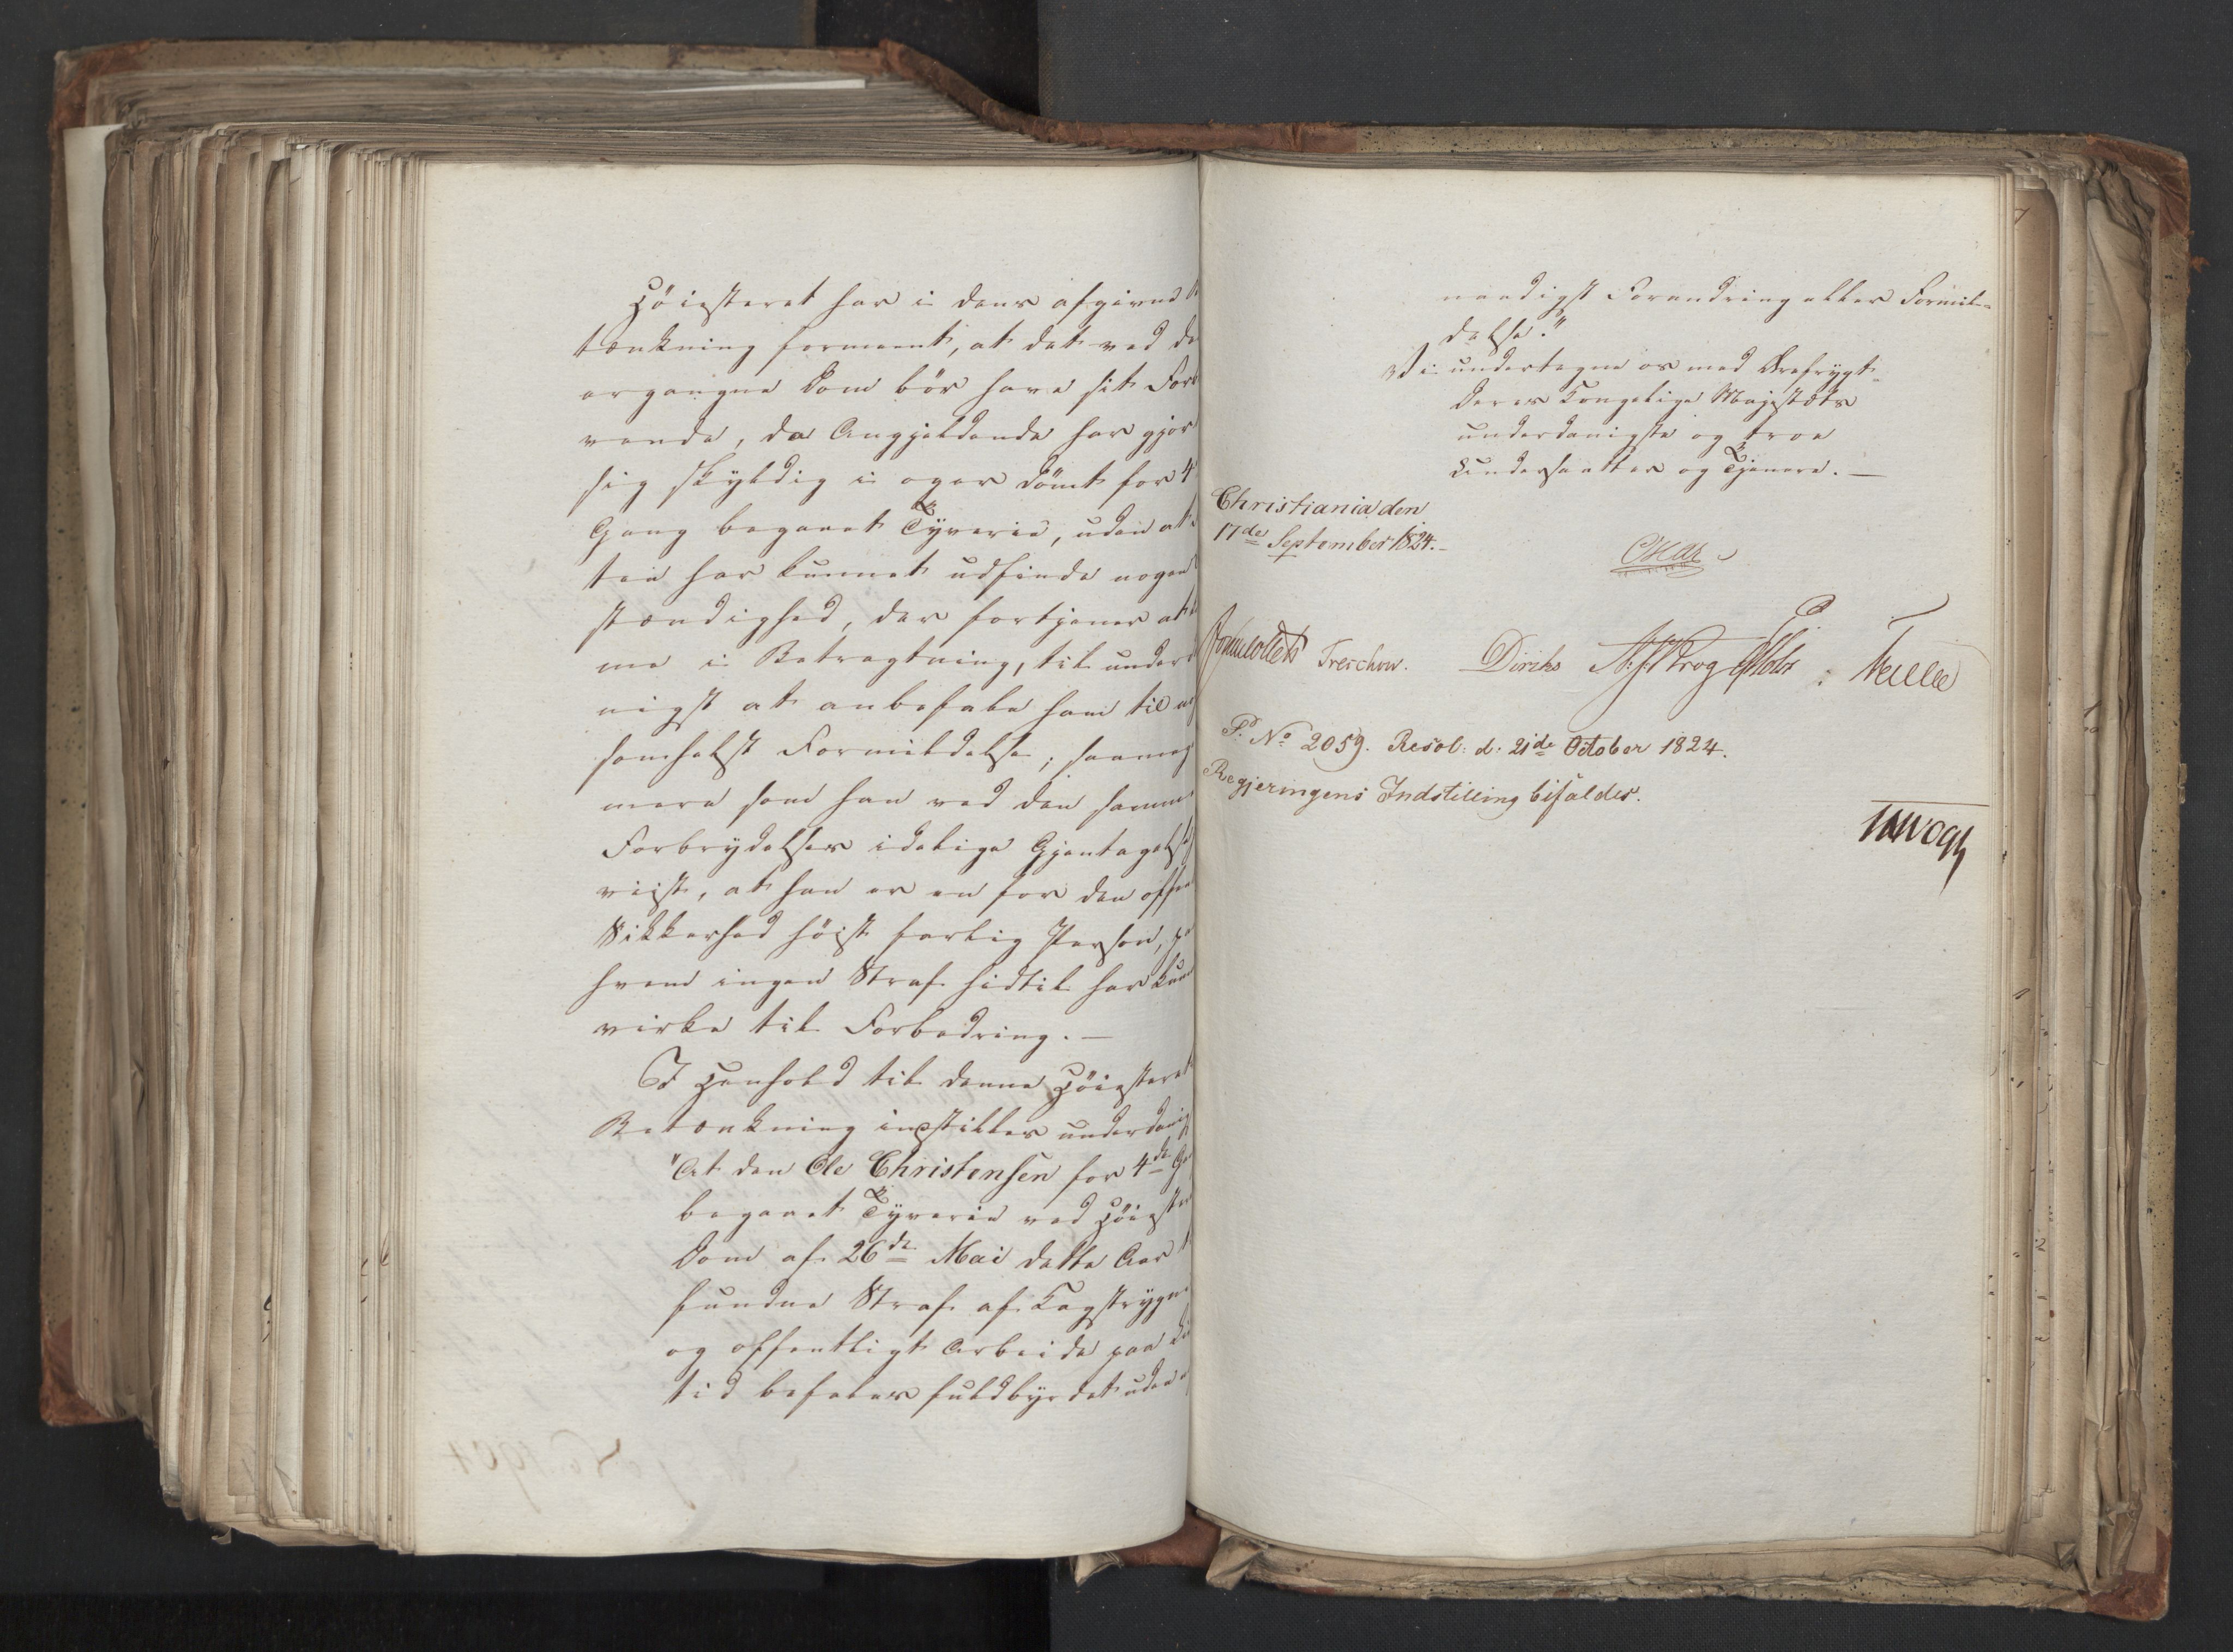 Höiesteret har i dens afgivne
tænkning formeent, at det ved de
ergangne Dom bör have sit For
vende, da Angjeldende har gjor
sig skyldig i og er dömt for 4
Gang begaaet Tyverie, uden at
ten har kunnet udfinde nogen
stændighed, der fortjener at
me i Betragtning, til under
nigst at anbefale ham til
somhelst Formildelse, saameg
mere som han ved den samme
Forbrydelses idelige Gjentagelse
viist, at han er en for den offen
Sikkerhed höist farlig Person, pa
hvem ingen Straf hidtil har kun
virke til Forbedring. —
I Henhold til denne Höiesteret
Betænkning indstilles underdanig
"At den Ole Christensen for 4de Ga
begaaet Tyverie ved Höiester
Dom af 26de Mai dette Aar
fundne Straf af Kagstrygn
og offentligt Arbeide paa Li
tid befales fuldbyrdet uden
naadigst Forandring eller Formil-
delse."
Vi undertegne os med Ærefrygt
Deres Kongelige Majestæts
underdanigste og troe
Undersaatter og Tjenere. —
Christiania den
17de September 1824.-
Treschow. Diriks
P: No 2059. Resol: d: 21de October 1824.
Regjeringens Indstilling bifaldes.